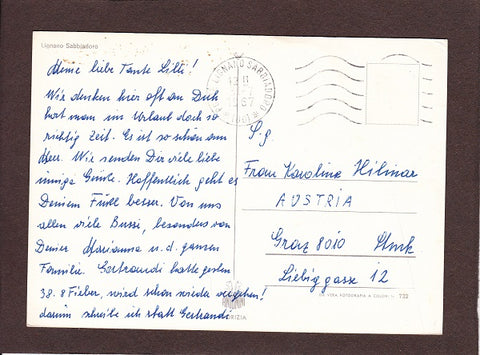 Lignano Sabbiadoro
Meine liebe Tante Lilli!
Wir denken hier oft an Dich
hat man im Urlaub doch so
richtig Zeit. Es ist so schön am
Meer. Wir senden Dir viele liebe
innige Grüße. Hoffentlich geht es
Deinem Fußl besser. Von uns
allen viele Bussi, besonders von
Deiner Marianna u. d. ganzen
Familie. Gertraudi hatte gestern
38.8 Fieber, wird schon wieder vergehen!
darum schreibe ich statt Gertraudi
LIGNANO SABBIADORO
67
S. g.
Frau Karolina Hilinar
AUSTRIA
Graz 8010 Stmk
Liebiggasse 12
VERA FOTOGRAFIA A COLORI